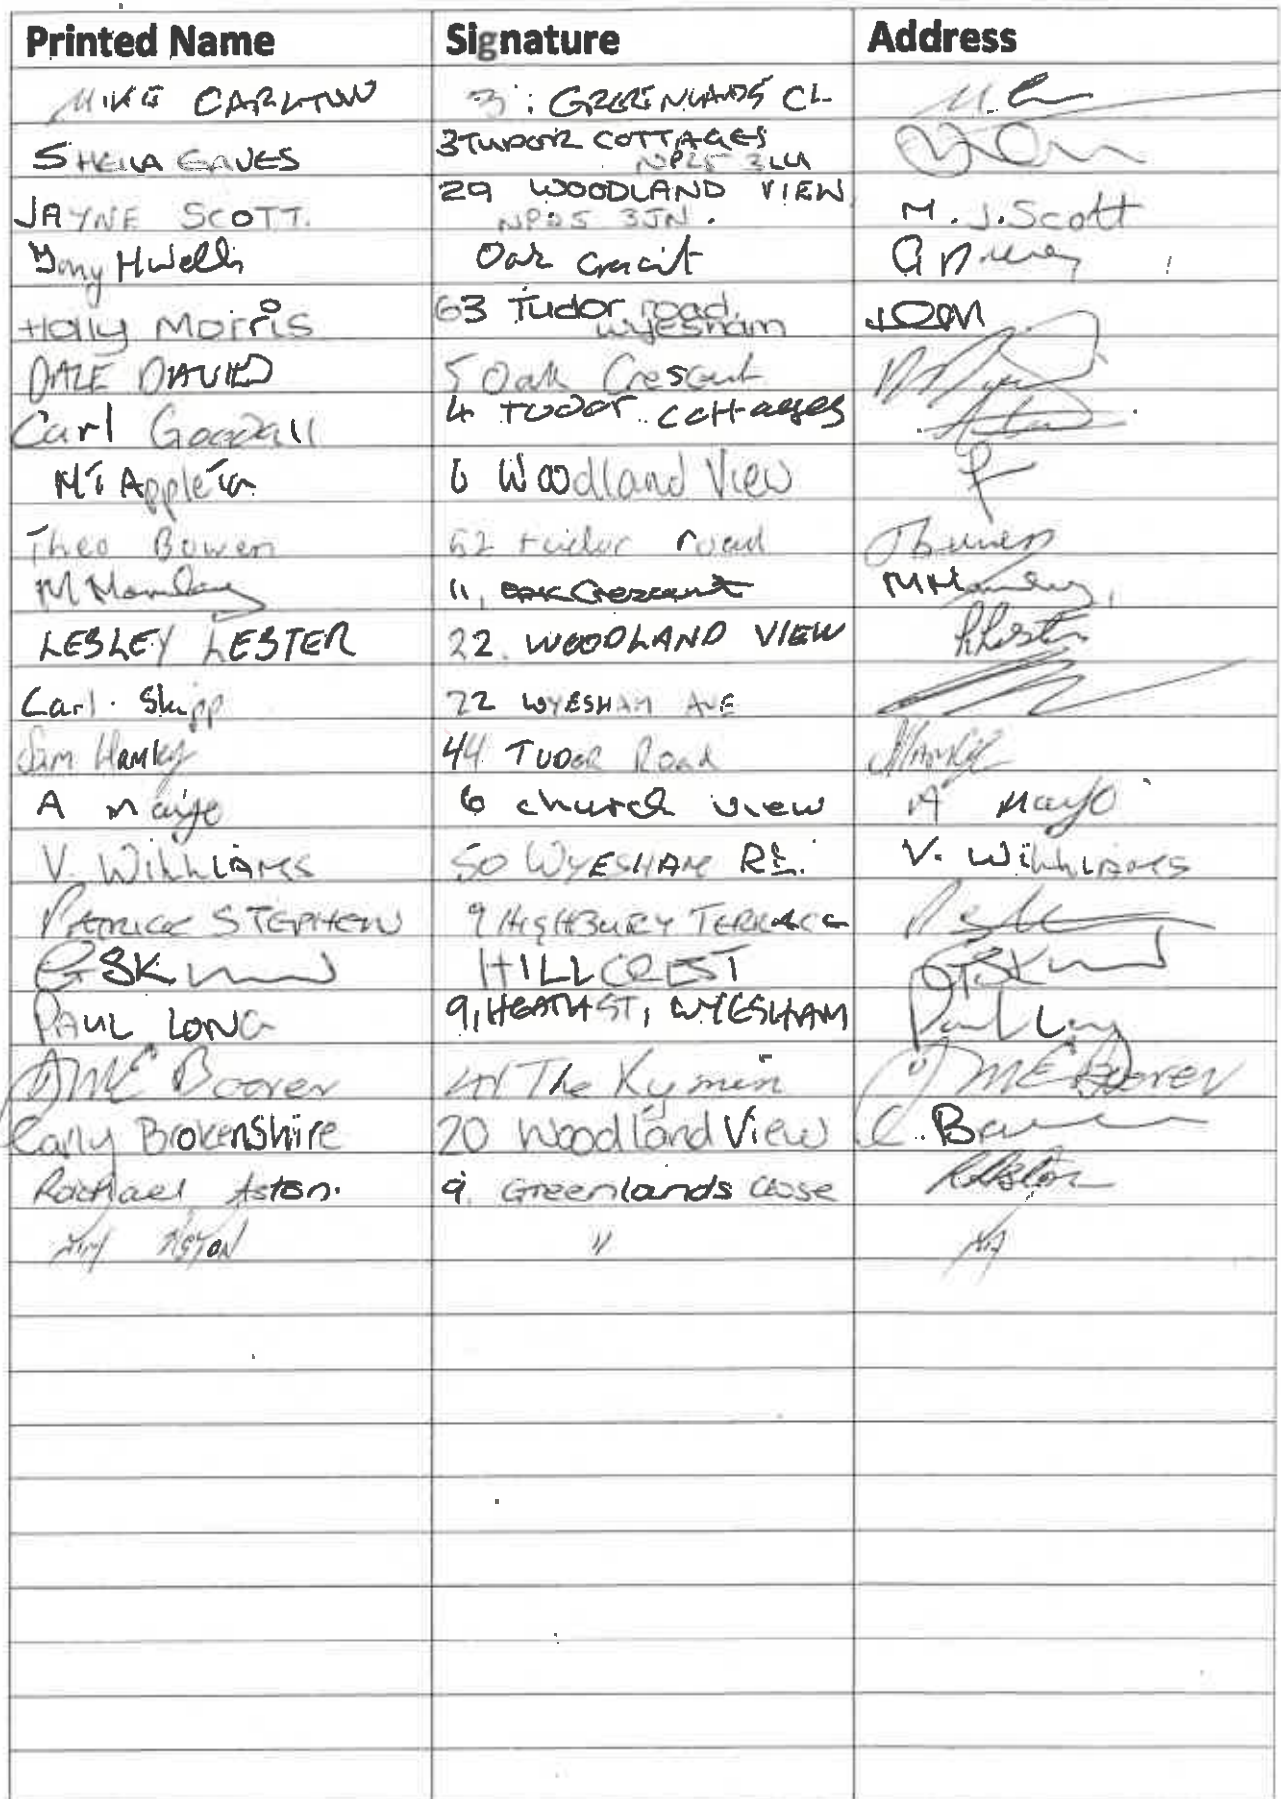 Printed Name Signature Address
MIKE CARLTON 3 : GREENLANDS CL.
SHEILA EAVES 3 TUDOR COTTAGES
NP25 3LU
JAYNE SCOTT. 29 WOODLAND VIEW M. J. Scott
NP25 3JN.
Tony H Wells Oak
Holly Morris 63 Tudor road
wyesham
DALE DAVID 5 Oak Crescent
Carl Goodall 4 Tudor cottages
Appleton 6 Woodland View
Theo Bowen 52 tudor road TBowen
M 11, Oak Crescent M
LESLEY LESTER 22. WOODLAND VIEW LLester
Carl. Skipp 22 WYESHAM AVE
Sam Hamley 44 TUDOR Road
A mayo 6 church view A Mayo
V. WILLIAMS 50 WYESHAM RD. V. WILLIAMS
PATRICK STEPHEN 9 HIGHBURY TERRACE
HILLCREST
PAUL LONG 9, HEATH ST, WYESHAM Paul Long
ME Boover The Kymin ME Boover
Carly Brokenshire 20 Woodland View C. B
Rachael Aston. 9. Greenlands Close RAston
ASTON "